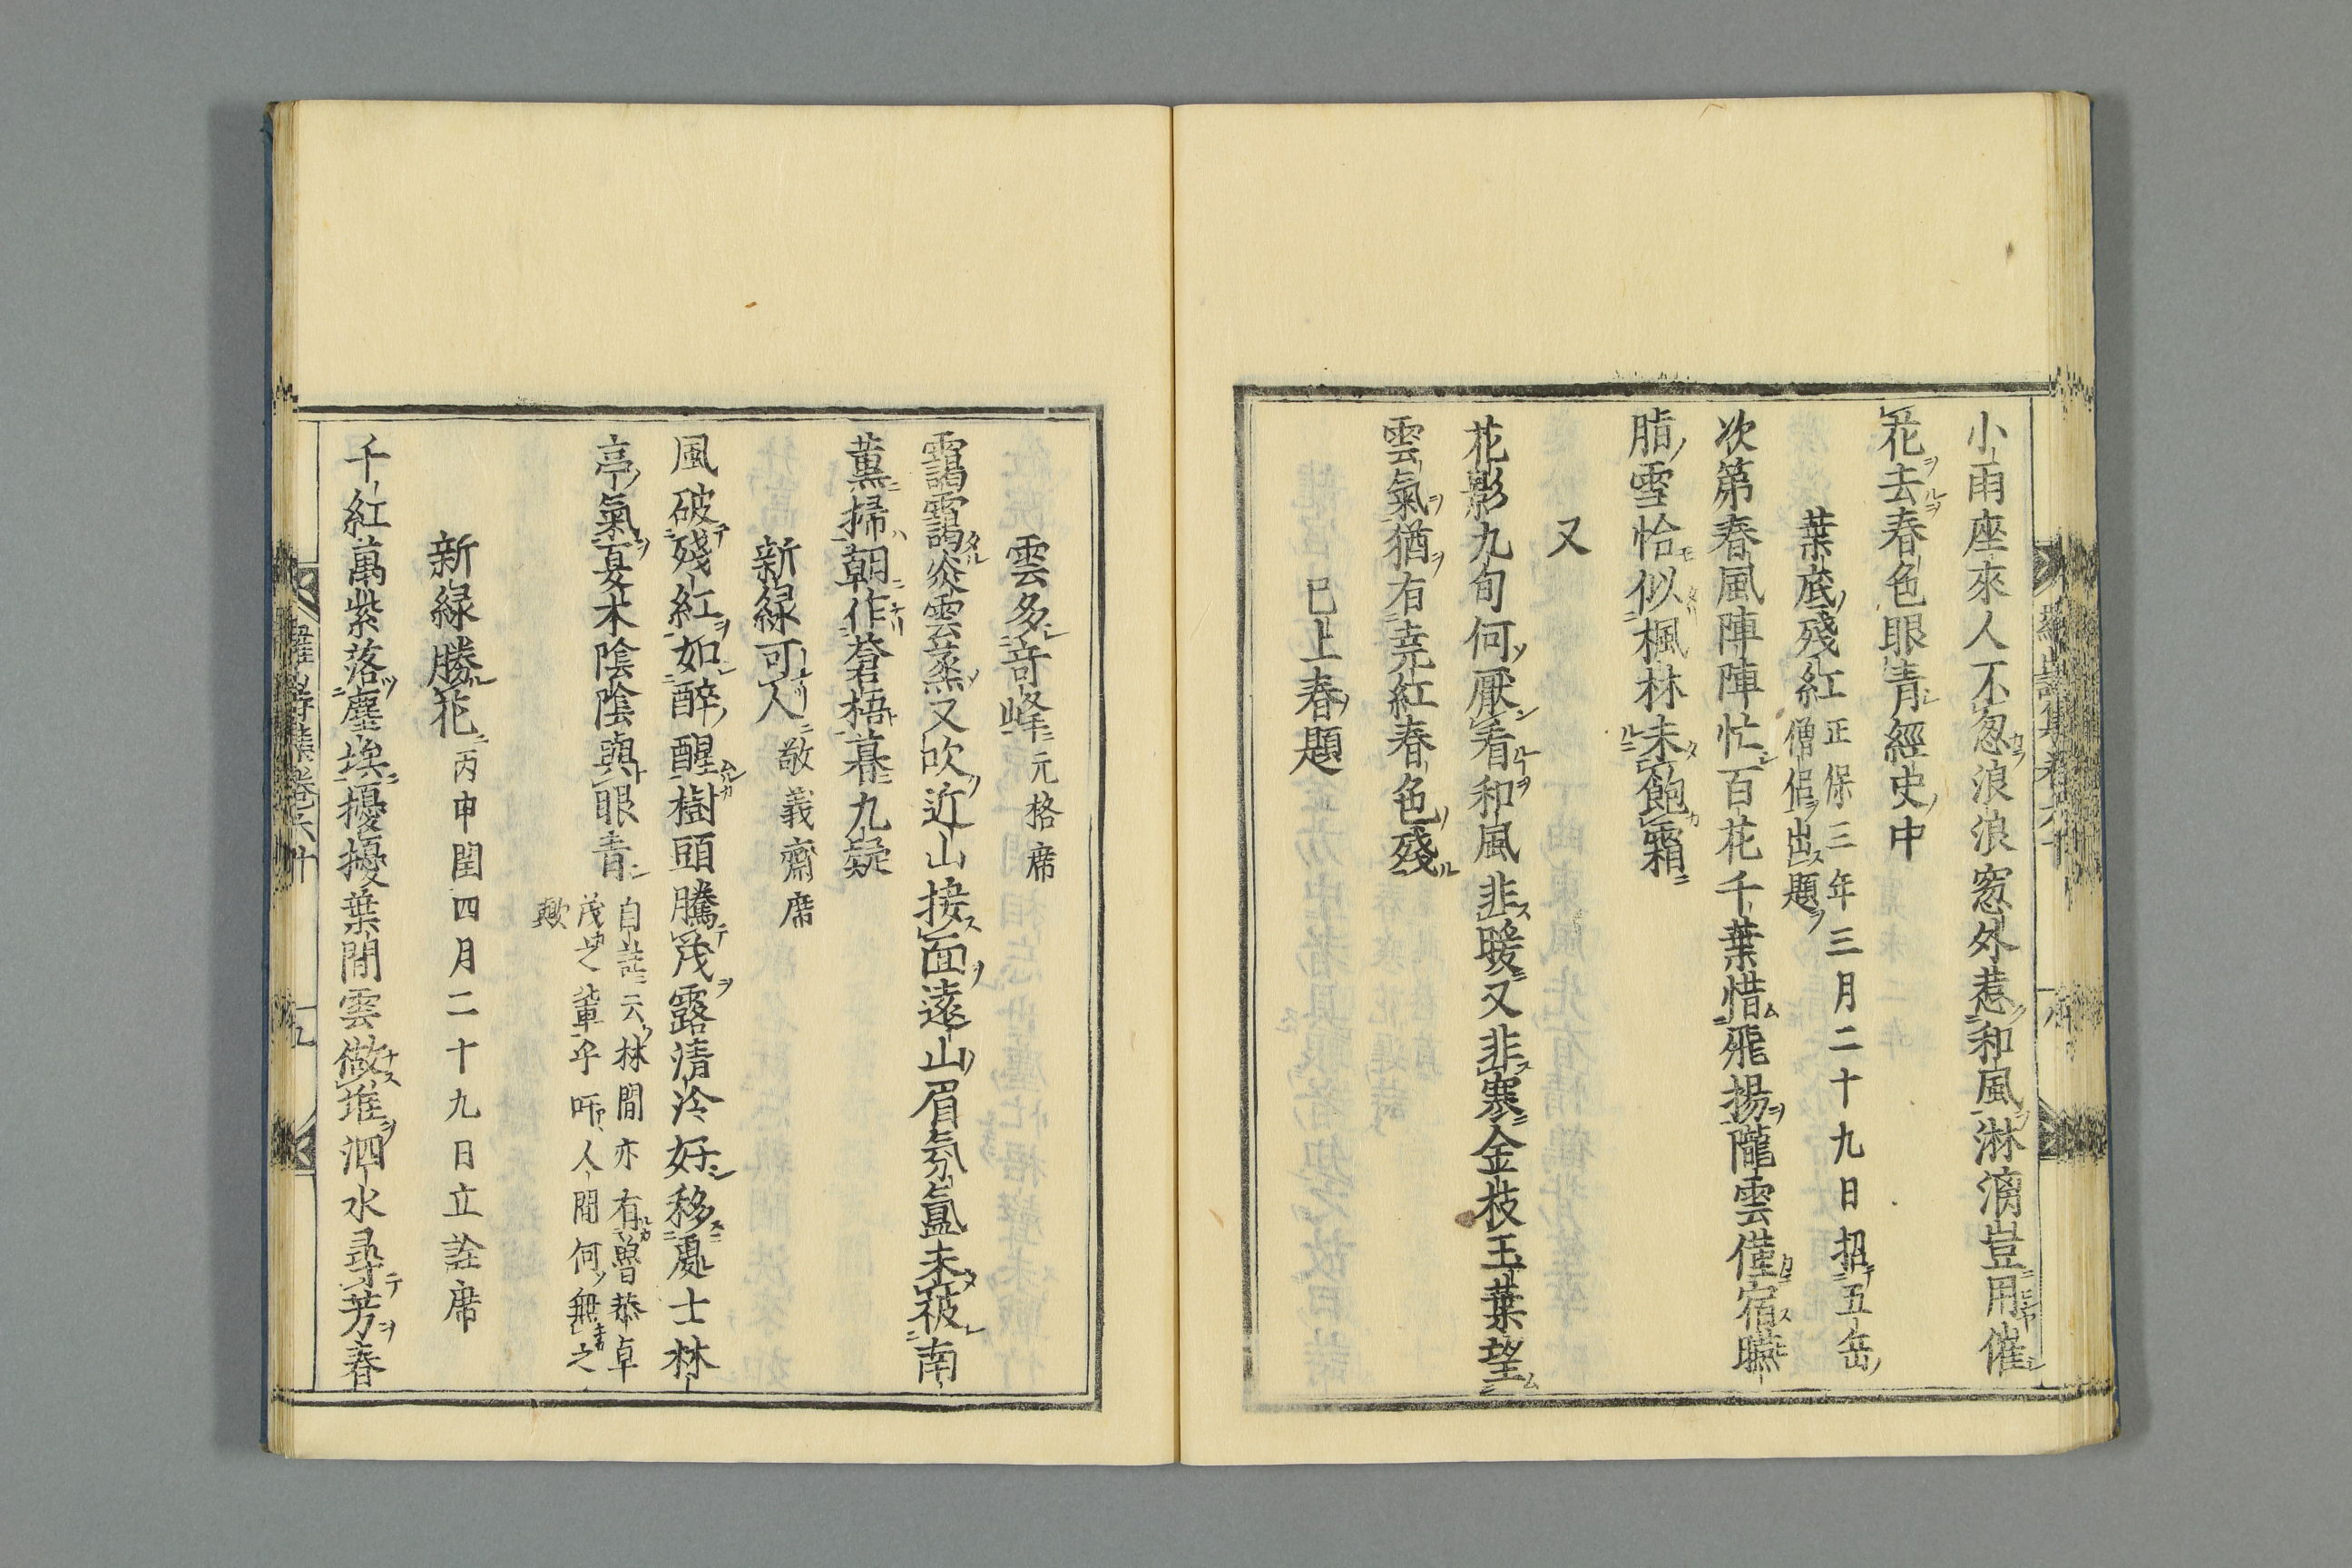 小雨座來人不怱浪浪窓外惹和風淋漓豈用催
花去春色眼青經史中
葉底殘紅
正保三年三月二十九日招五岳
僧侶出題
次第春風陣陣忙百花千葉惜飛揚隴雲僅宿臙
脂雪恰似楓林未飽霜
又
花影九旬何厭看和風非暖又非寒金枝玉葉望
雲氣猶有堯紅春色殘
已上春題
雲多竒峰元格席
靄靄炎雲蒸又吹近山接面遠山眉氛氳未被南
薰掃朝作蒼梧暮九疑
新緑可人敬義齋席
風破殘紅如醉醒樹頭騰茂露清泠好移處士林
亭氣夏木陰陰與眼青
自註云林間亦有魯恭卓
茂之輩乎吁人間何無之
歟
新緑勝花丙申閏四月二十九日立詮席
千紅萬紫落塵埃擾擾葉間雲做堆泗水尋芳春